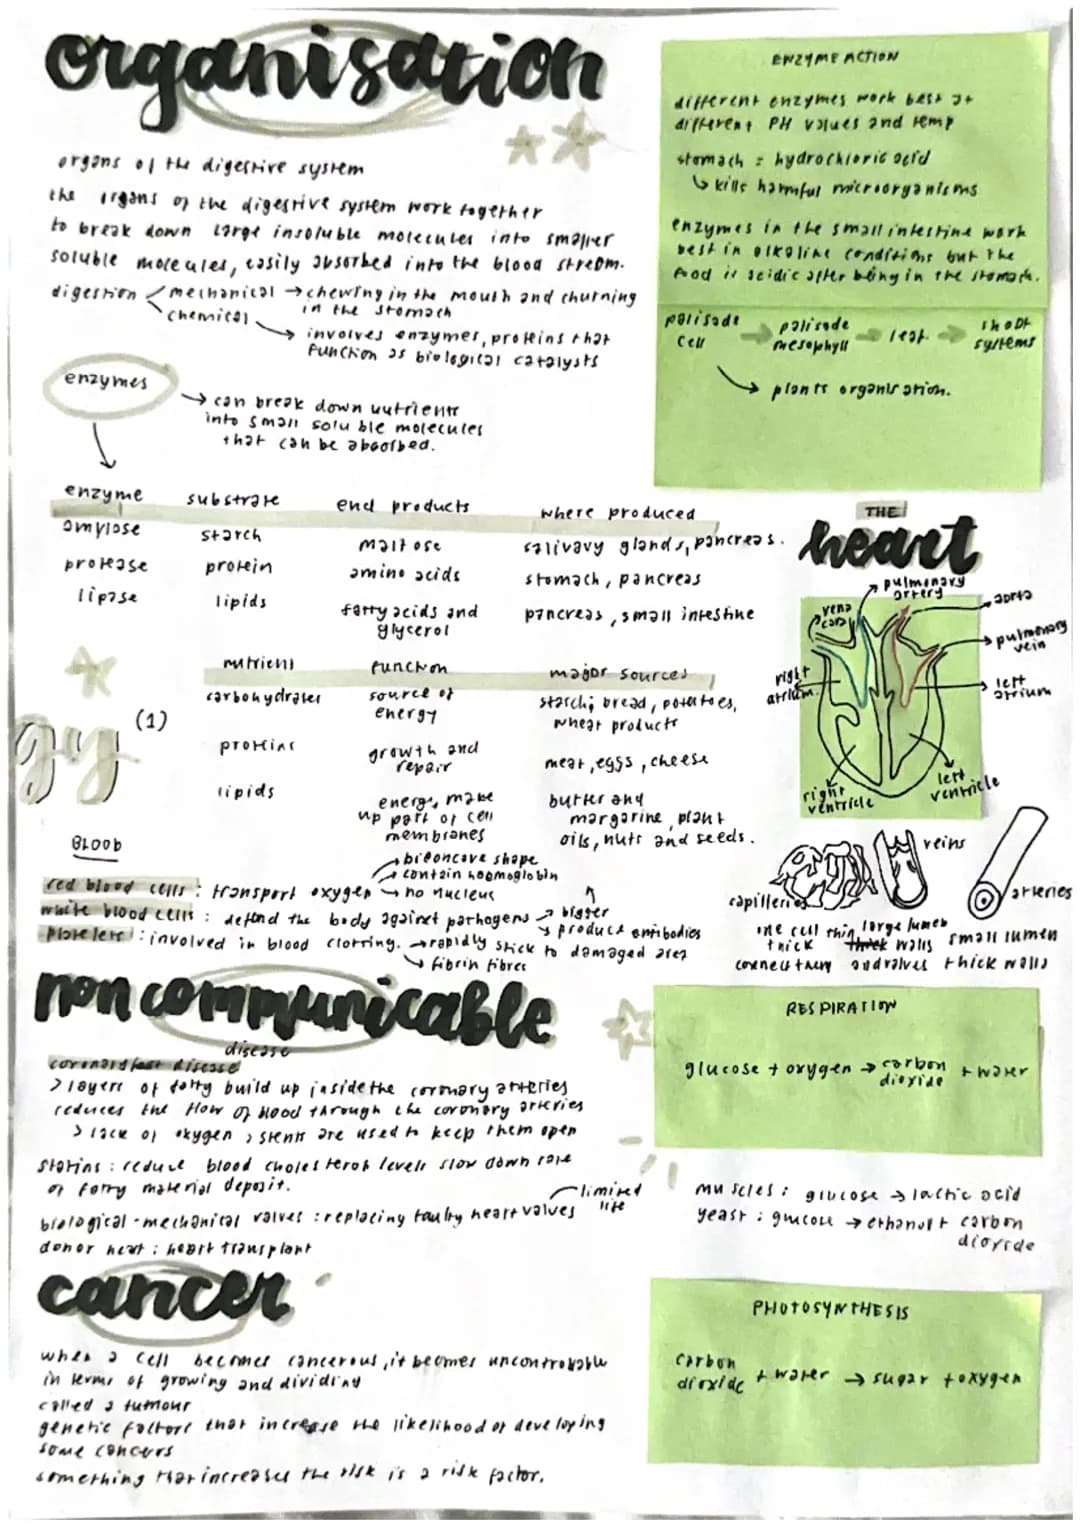 organisation
organs of the digestive system
the organs of the digestive system work together
to break down large insoluble molecules into smaller
soluble molecules, easily absorbed into the blood stream.
digestion mechanical → chewing in the mouth and churning
in the stomach
chemical → involves enzymes, proteins that
function as biological catalysts
enzymes
→ can break down nutrients
into small soluble molecules
that can be absorbed.
enzyme substrate end products where produced
amylase starch maltose salivary glands, pancreas.
protease protein amino acids stomach, pancreas
lipase lipids fatty acids and
glycerol pancreas, small intestine
nutrient function major sources
carbohydrates source of
energy starch; bread, potatoes,
wheat products
proteins growth and
repair meat, eggs, cheese
lipids energy, make
up part of cell
membranes butter and
margarine, plant
oils, nuts and seeds.
(1)
BLOOD
red blood cells : transport oxygen
→ biconcave shape
→ contain haemoglobin
→ no nucleus
white blood cells : defend the body against pathogens
→ bigger
→ produce antibodies
platelets : involved in blood clotting. → rapidly stick to damaged area
→ fibrin fibres
ENZYME ACTION
different enzymes work best at
different PH values and temp
stomach = hydrochloric acid
↳ kills harmful microorganisms
enzymes in the small intestine work
best in alkaline conditions but the
food is acidic after being in the stomach.
palisade
cell → palisade
mesophyll → leaf → shoot
systems
→ plants organisation.
THE
heart
pulmonary
artery
vena
cava
aorta
pulmonary
vein
right
atrium
left
atrium
right
ventricle
left
ventricle
capilleries
one cell thin
thick
connect them
veins
large lumen
thick walls
and valves
arteries
small lumen
thick walls
non communicable
disease
> layers of fatty build up inside the coronary arteries
reduces the flow of blood through the coronary arteries
> lack of oxygen > stents are used to keep them open
statins : reduce blood cholesterol levels slow down rate
of fatty material deposit.
biological-mechanical valves : replacing faulty heart valves
limited
life
donor heart : heart transplant
RESPIRATION
glucose + oxygen → carbon
dioxide + water
muscles : glucose → lactic acid
yeast : glucose → ethanol + carbon
dioxide
cancer
when a cell becomes cancerous, it becomes uncontrollable
in terms of growing and dividing
called a tumour
genetic factors that increase the likelihood of developing
some cancers
something that increases the risk is a risk factor.
PHOTOSYNTHESIS
carbon
dioxide + water → sugar + oxygen